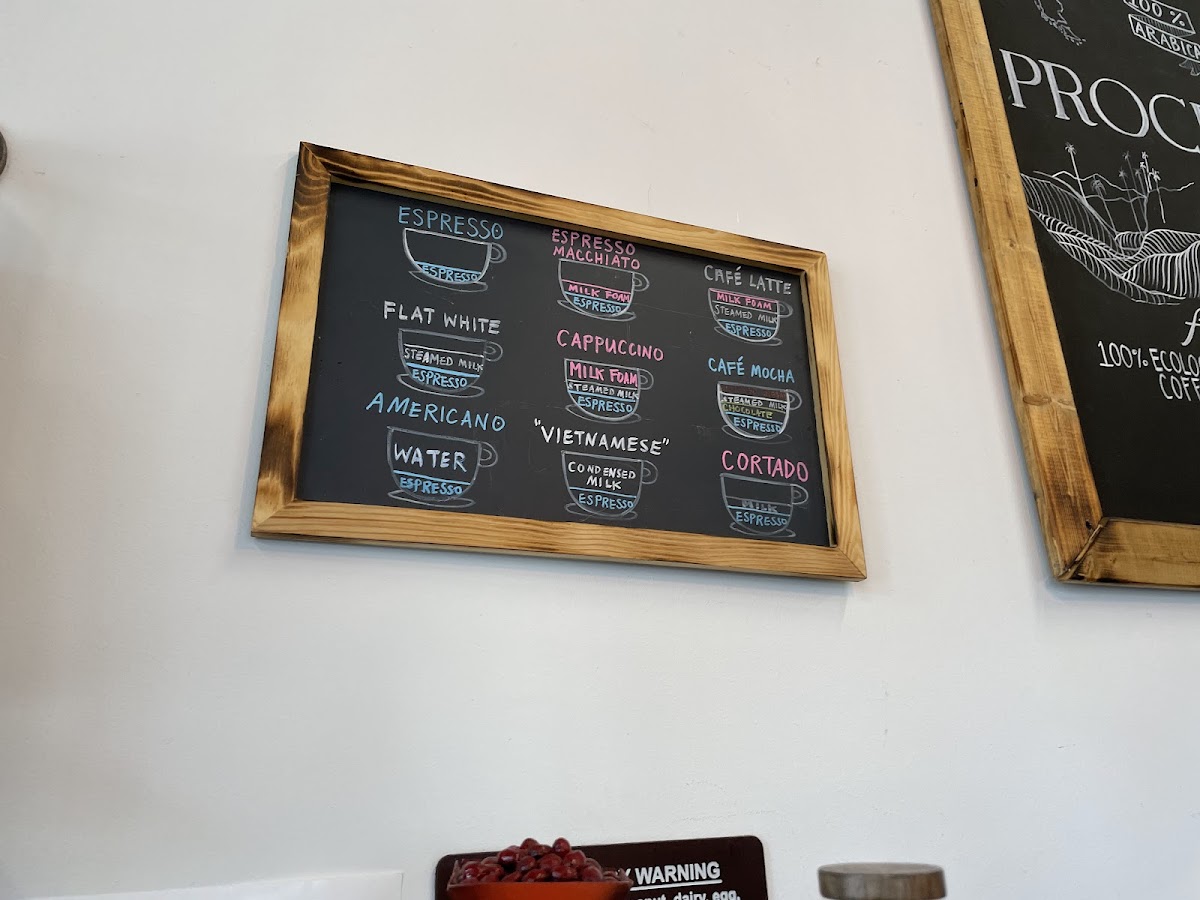 ESPRESSO
ESPRESSO
ESPRESSO
MACCHIATO
MILK FOAM
ESPRESSO
CAFÉ LATTE
MILK FOAM
STEAMED MILK
ESPRESSO
FLAT WHITE
STEAMED MILK
ESPRESSO
CAPPUCCINO
MILK FOAM
STEAMED MILK
ESPRESSO
CAFÉ MOCHA
STEAMED MILK
CHOCOLATE
ESPRESSO
AMERICANO
WATER
ESPRESSO
"VIETNAMESE"
CONDENSED
MILK
ESPRESSO
CORTADO
MILK
ESPRESSO
100%
ARABICA
PROC
100% ECOLO
COFF
WARNING
dairy, egg,